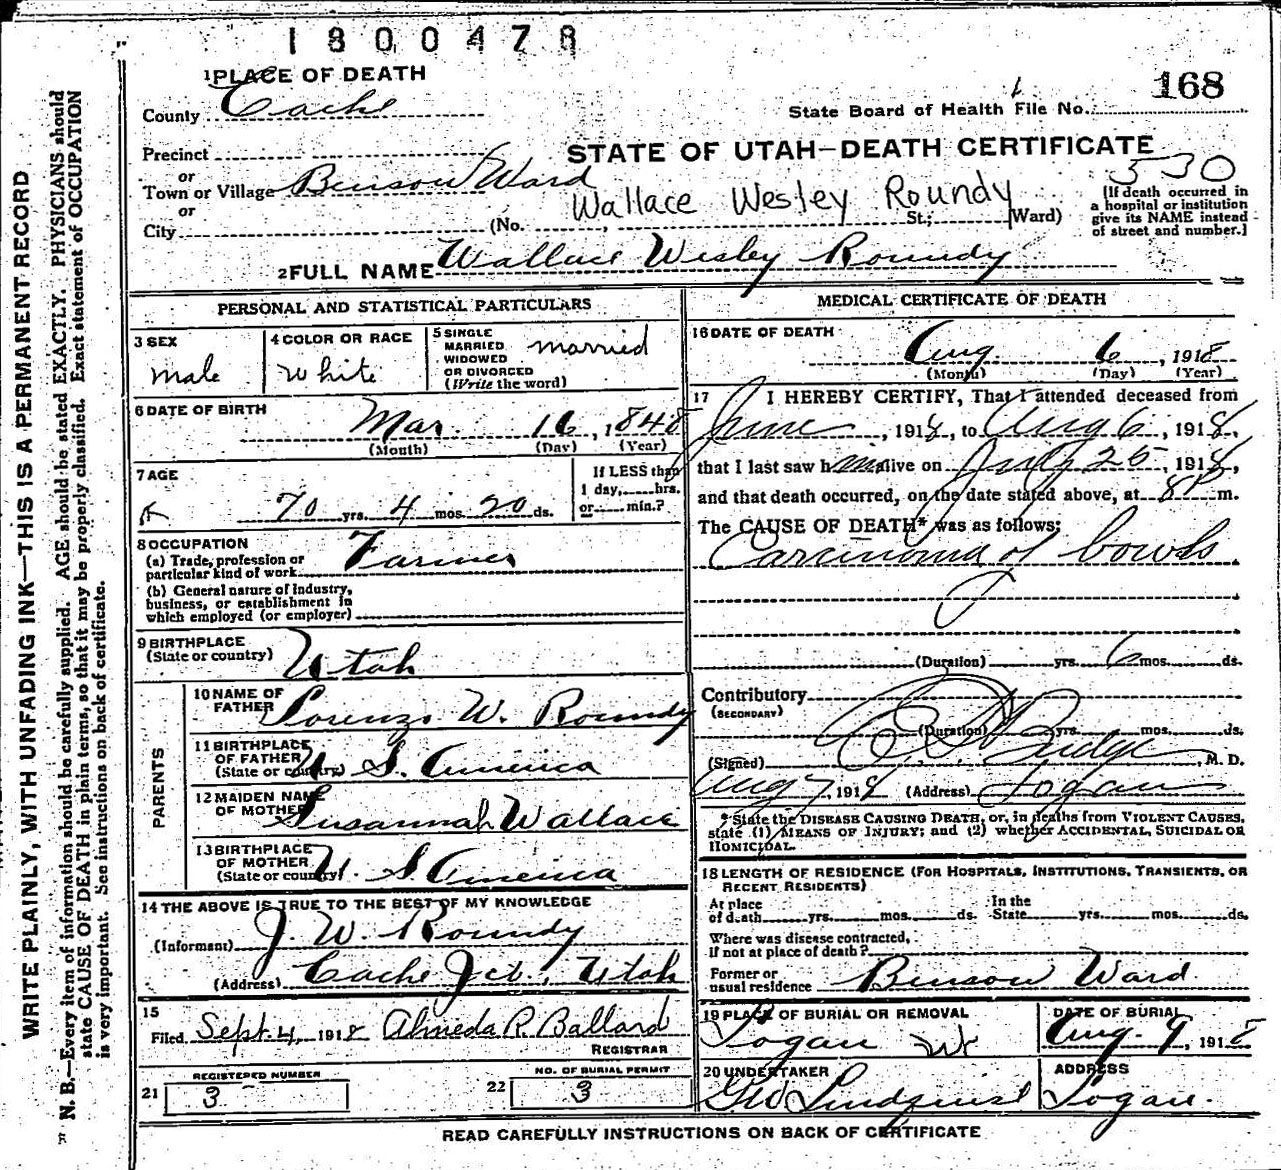 1800478
1 PLACE OF DEATH
County Cache
State Board of Health File No. 168
Precinct
STATE OF UTAH—DEATH CERTIFICATE
530
or
Town or Village Benson Ward
or
Wallace Wesley Roundy
City (No. , St.; Ward)
[If death occurred in
a hospital or institution
give its NAME instead
of street and number.]
2 FULL NAME Wallace Wesley Roundy
PERSONAL AND STATISTICAL PARTICULARS
3 SEX
male
4 COLOR OR RACE
White
5 SINGLE
MARRIED
WIDOWED
OR DIVORCED
(Write the word)
married
6 DATE OF BIRTH
Mar. 16, 1848
(Month) (Day) (Year)
7 AGE
70 yrs. 4 mos. 20 ds.
If LESS than
1 day, hrs.
or min.?
8 OCCUPATION
(a) Trade, profession or
particular kind of work Farmer
(b) General nature of Industry,
business, or establishment in
which employed (or employer)
9 BIRTHPLACE
(State or country) Utah
PARENTS
10 NAME OF
FATHER Lorenzo W. Roundy
11 BIRTHPLACE
OF FATHER
(State or country) U. S. America
12 MAIDEN NAME
OF MOTHER Susannah Wallace
13 BIRTHPLACE
OF MOTHER
(State or country) U. S. America
14 THE ABOVE IS TRUE TO THE BEST OF MY KNOWLEDGE
(Informant) J. W. Roundy
(Address) Cache Jct., Utah
15
Filed Sept. 4, 1918 Almeda R. Ballard
REGISTRAR
REGISTERED NUMBER
21 3
NO. OF BURIAL PERMIT
22 3
MEDICAL CERTIFICATE OF DEATH
16 DATE OF DEATH
Aug. 6, 1918
(Month) (Day) (Year)
17 I HEREBY CERTIFY, That I attended deceased from
June, 1918, to Aug 6, 1918,
that I last saw him alive on July 25, 1918,
and that death occurred, on the date stated above, at 8 P m.
The CAUSE OF DEATH* was as follows:
Carcinoma of bowels
(Duration) yrs. 6 mos. ds.
Contributory
(SECONDARY)
(Duration) yrs. mos. ds.
(Signed) Budge, M. D.
Aug 7, 1918 (Address) Logan
* State the DISEASE CAUSING DEATH, or, in deaths from VIOLENT CAUSES,
state (1) MEANS OF INJURY; and (2) whether ACCIDENTAL, SUICIDAL OR
HOMICIDAL.
18 LENGTH OF RESIDENCE (FOR HOSPITALS, INSTITUTIONS, TRANSIENTS, OR
RECENT RESIDENTS)
At place In the
of death yrs. mos. ds. State yrs. mos. ds.
Where was disease contracted,
if not at place of death?
Former or
usual residence Benson Ward
19 PLACE OF BURIAL OR REMOVAL
Logan Ut
DATE OF BURIAL
Aug. 9, 1918
20 UNDERTAKER
Geo Lindquist
ADDRESS
Logan.
READ CAREFULLY INSTRUCTIONS ON BACK OF CERTIFICATE
WRITE PLAINLY, WITH UNFADING INK—THIS IS A PERMANENT RECORD
N. B.—Every item of information should be carefully supplied. AGE should be stated EXACTLY. PHYSICIANS should
state CAUSE OF DEATH in plain terms, so that it may be properly classified. Exact statement of OCCUPATION
is very important. See instructions on back of certificate.